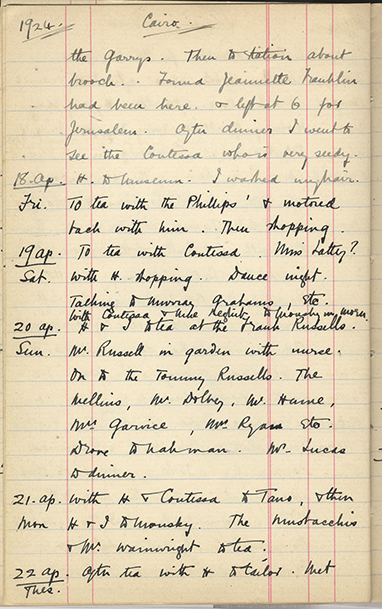 1924. Cairo.
the Garrys. Then to station about
brooch. Found Jeannette Franklin
had been here. & left at 6 for
Jerusalem. After dinner I went to
see the Contessa who is very seedy.
18. Ap. H. to museum. I washed my hair.
Fri. To tea with the Phillips' & motored
back with him. Then shopping.
19 ap. To tea with Contessa. Miss Lattey?
Sat. with H. shopping. Dance night.
Talking to Murray Grahams, etc.
with Contessa & Mme to in morn.
20 ap. H & I to tea at the Frank Russells.
Sun. Mr. Russell in garden with nurse.
On to the Tommy Russells. The
Mellins, Mr. Dolbey, Mr. Hume,
Mrs Garvice, Mrs Ryan etc.
Drove to Nahman. Mr. Lucas
to dinner.
21. ap. with H & Contessa to Tano, & then
Mon H & I to Mousky. The Mustacchis
& Mr. Wainwright to tea.
22 ap After tea with H to tailor. Met
Tues.